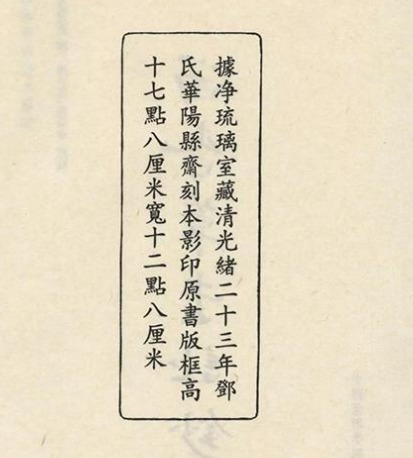 據净琉璃室藏清光緒二十三年鄧
氏華陽縣齋刻本影印原書版框高
十七點八厘米寬十二點八厘米